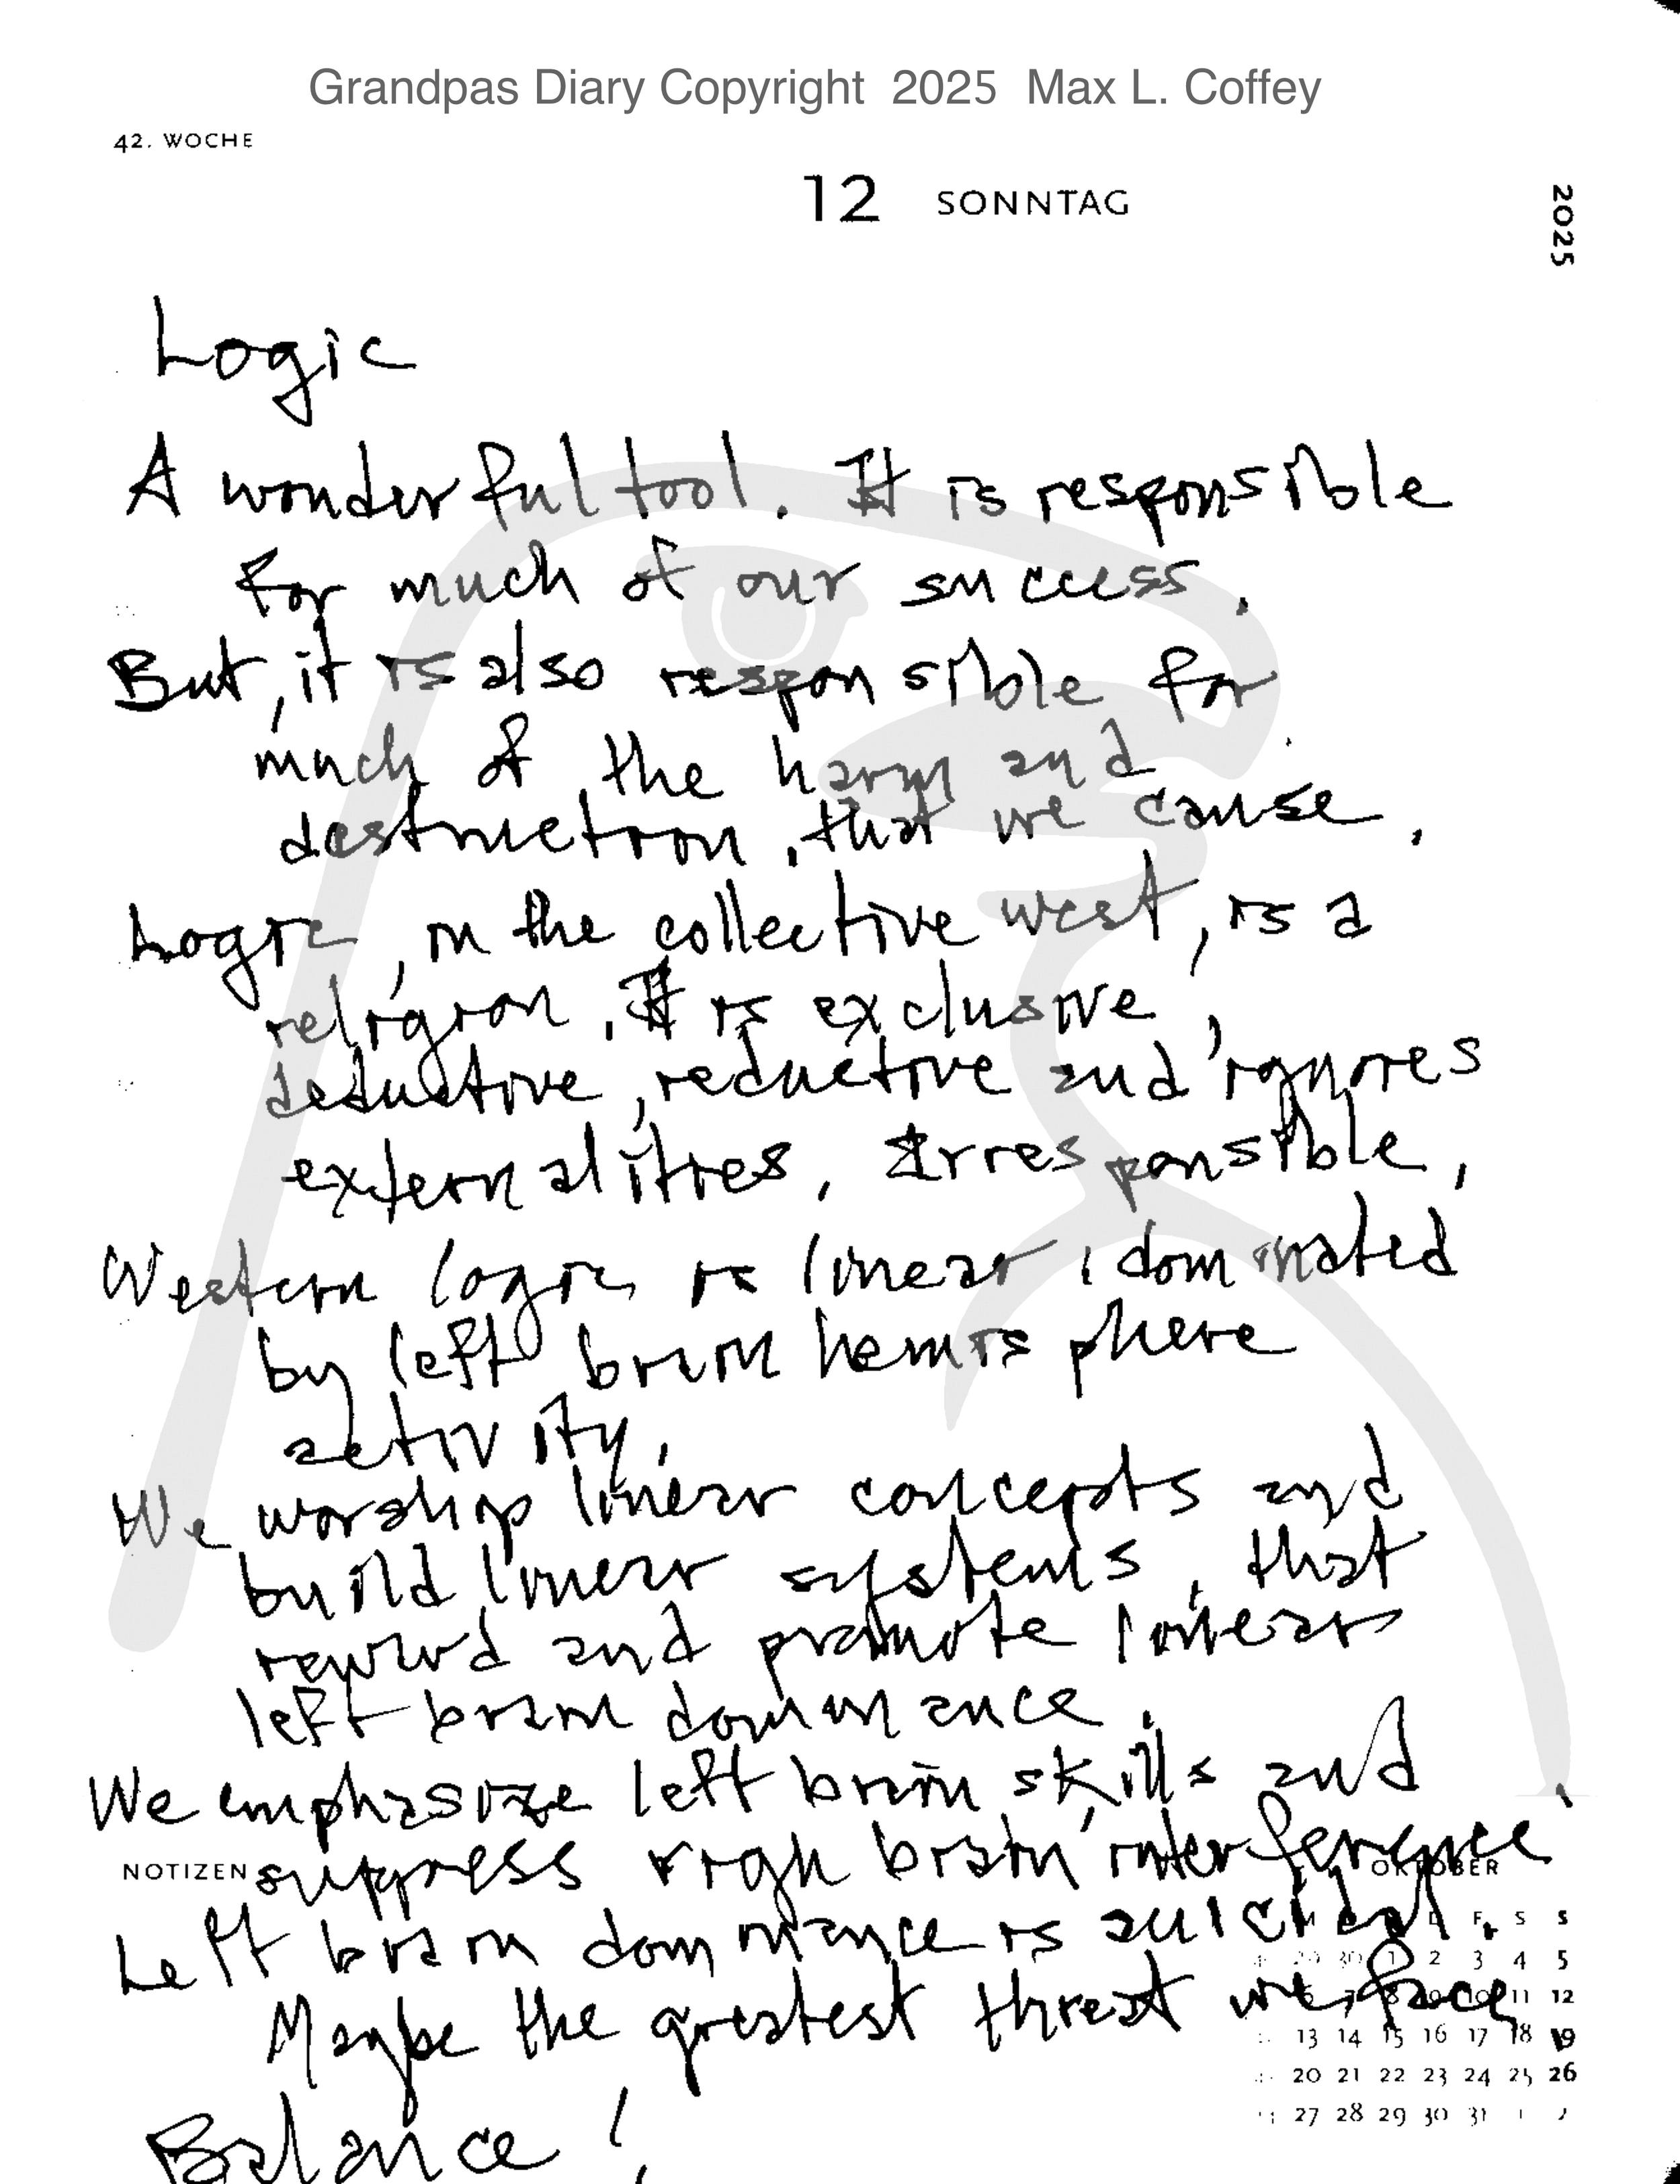 Grandpas Diary Copyright 2025 Max L. Coffey
42. WOCHE
12 SONNTAG
2025
Logic
A wonderful tool. It is responsible
for much of our success.
But, it is also responsible for
much of the harm and
destruction, that we cause.
Logic, in the collective west, is a
religion. It is exclusive,
deductive, reductive and ignores
externalities. Irresponsible.
Western logic is linear, dominated
by left brain hemisphere
activity.
We worship linear concepts and
build linear systems, that
reward and promote linear
left brain dominance.
We emphasize left brain skills and
suppress righ brain interference.
Left brain dominance is suicidal.
Maybe the greatest threat we face.
Balance!
NOTIZEN
OKTOBER
M D F S S
29 30 1 2 3 4 5
6 7 8 9 10 11 12
13 14 15 16 17 18 19
20 21 22 23 24 25 26
27 28 29 30 31 1 2